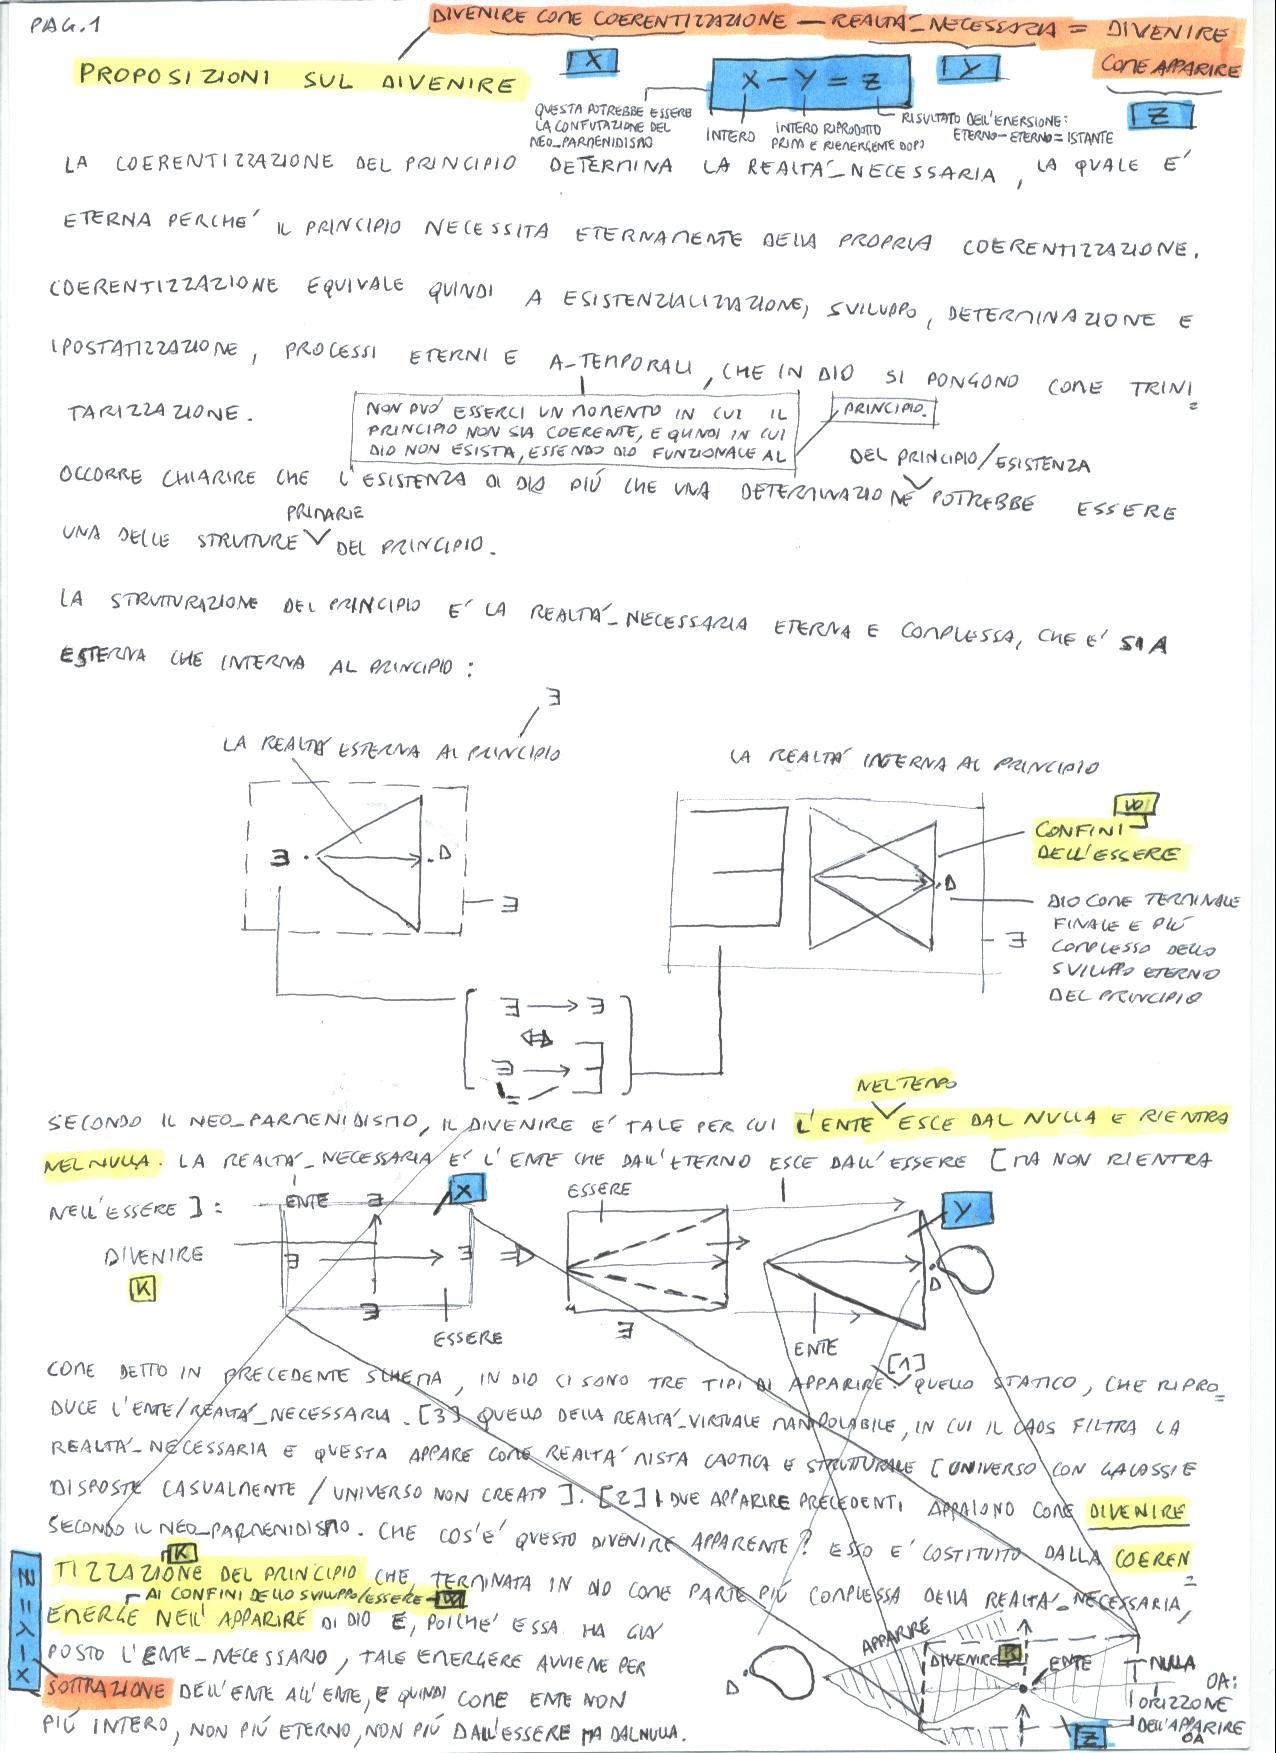 PAG.1
DIVENIRE COME COERENTIZZAZIONE — REALTÀ_NECESSARIA = DIVENIRE
COME APPARIRE
PROPOSIZIONI SUL DIVENIRE
X
X - Y = Z
Y
Z
QUESTA POTREBBE ESSERE
LA CONFUTAZIONE DEL
NEO_PARMENIDISMO
INTERO
INTERO RIPRODOTTO
PRIMA E RIEMERGENTE DOPO
RISULTATO DELL'EMERSIONE:
ETERNO-ETERNO=ISTANTE
LA COERENTIZZAZIONE DEL PRINCIPIO DETERMINA LA REALTÀ_NECESSARIA, LA QUALE E'
ETERNA PERCHE' IL PRINCIPIO NECESSITA ETERNAMENTE DELLA PROPRIA COERENTIZZAZIONE.
COERENTIZZAZIONE EQUIVALE QUINDI A ESISTENZIALIZZAZIONE, SVILUPPO, DETERMINAZIONE E
IPOSTATIZZAZIONE, PROCESSI ETERNI E A-TEMPORALI, CHE IN DIO SI PONGONO COME TRINI=
TARIZZAZIONE.
NON PUÒ ESSERCI UN MOMENTO IN CUI IL
PRINCIPIO NON SIA COERENTE, E QUINDI IN CUI
DIO NON ESISTA, ESSENDO DIO FUNZIONALE AL
PRINCIPIO.
DEL PRINCIPIO/ESISTENZA
OCCORRE CHIARIRE CHE L'ESISTENZA DI DIO PIÚ CHE UNA DETERMINAZIONE POTREBBE ESSERE
PRIMARIE
UNA DELLE STRUTTURE DEL PRINCIPIO.
LA STRUTTURAZIONE DEL PRINCIPIO E' LA REALTÀ_NECESSARIA ETERNA E COMPLESSA, CHE E' SIA
ESTERNA CHE INTERNA AL PRINCIPIO:
Ǝ
LA REALTÀ ESTERNA AL PRINCIPIO
LA REALTÀ INTERNA AL PRINCIPIO
Ǝ
D
Ǝ
D
Ǝ
W
CONFINI
DELL'ESSERE
DIO COME TERMINALE
FINALE E PIÚ
COMPLESSO DELLO
SVILUPPO ETERNO
DEL PRINCIPIO
Ǝ → Ǝ
⇔
Ǝ → Ǝ
NEL TEMPO
SECONDO IL NEO_PARMENIDISMO, IL DIVENIRE E' TALE PER CUI L'ENTE ESCE DAL NULLA E RIENTRA
NEL NULLA. LA REALTÀ_NECESSARIA E' L'ENTE CHE DALL'ETERNO ESCE DALL'ESSERE [MA NON RIENTRA
NELL'ESSERE]:
ENTE
Ǝ
X
ESSERE
Y
DIVENIRE
K
Ǝ
Ǝ
Ǝ
ESSERE
Ǝ
ENTE
D
COME DETTO IN PRECEDENTE SCHEMA, IN DIO CI SONO TRE TIPI DI APPARIRE. [1] QUELLO STATICO, CHE RIPRO=
DUCE L'ENTE/REALTÀ_NECESSARIA. [3] QUELLO DELLA REALTÀ_VIRTUALE MANIPOLABILE, IN CUI IL CAOS FILTRA LA
REALTÀ_NECESSARIA E QUESTA APPARE COME REALTÀ MISTA CAOTICA E STRUTTURALE [UNIVERSO CON GALASSIE
DISPOSTE CASUALMENTE / UNIVERSO NON CREATO]. [2] I DUE APPARIRE PRECEDENTI APPAIONO COME DIVENIRE
SECONDO IL NEO_PARMENIDISMO. CHE COS'E' QUESTO DIVENIRE APPARENTE? ESSO E' COSTITUITO DALLA COEREN=
K
TIZZAZIONE DEL PRINCIPIO CHE TERMINATA IN DIO COME PARTE PIÚ COMPLESSA DELLA REALTÀ_NECESSARIA,
AI CONFINI DELLO SVILUPPO/ESSERE W
EMERGE NELL'APPARIRE DI DIO E, POICHE' ESSA HA GIÀ
POSTO L'ENTE_NECESSARIO, TALE EMERGERE AVVIENE PER
SOTTRAZIONE DELL'ENTE ALL'ENTE, E QUINDI COME ENTE NON
PIÚ INTERO, NON PIÚ ETERNO, NON PIÚ DALL'ESSERE MA DAL NULLA.
X-Y=Z
APPARIRE
DIVENIRE K
ENTE
NULLA
D
Z
OA:
ORIZZONTE
DELL'APPARIRE
OA